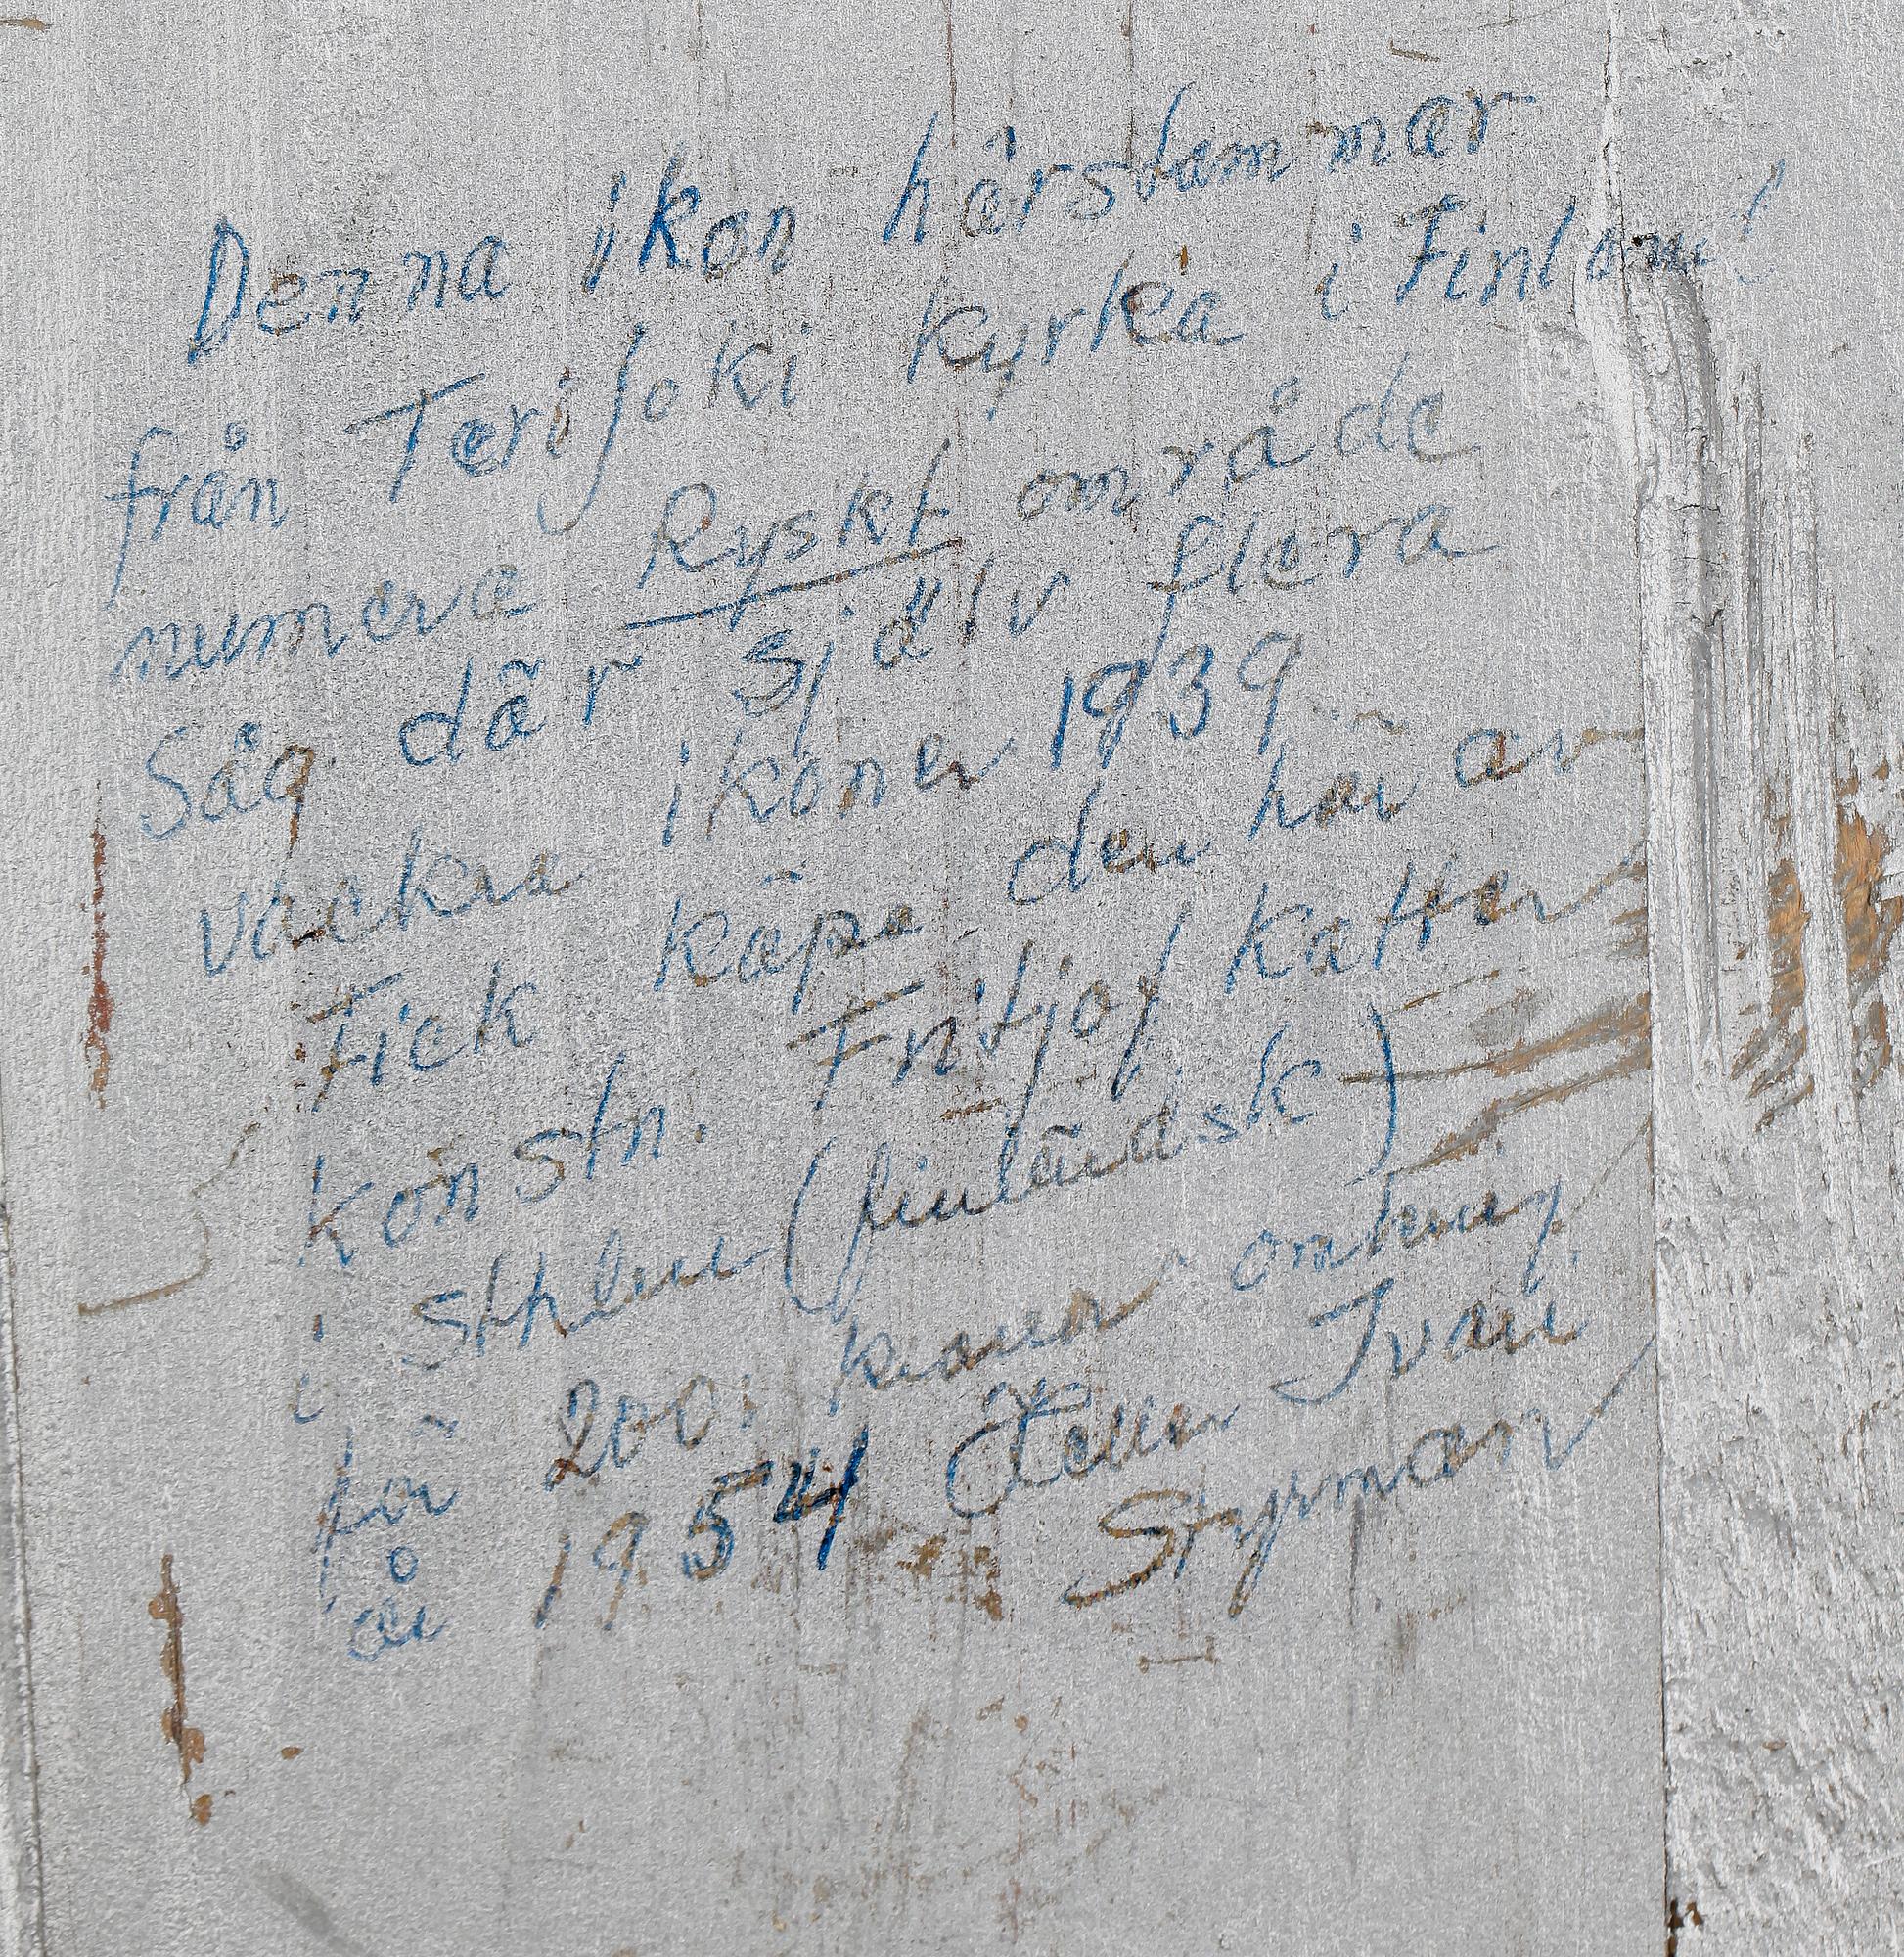 Denna ikon härstammar
från Terijoki kyrka i Finland
numera Ryskt område
Såg där själv flera
vackra ikoner 1939
Fick köpa den här av
Konstn. Fritjof Katter
i Sthlm (finländsk)
för 200: kronor omkring
år 1954 Ivan
Styrman